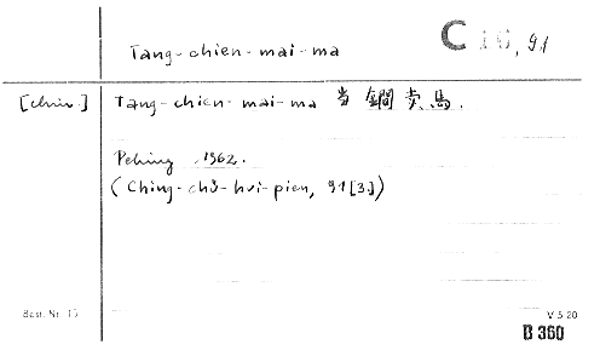 Tang-chien-mai-ma C 16, 91
[chin.] Tang-chien-mai-ma 当 鐧 卖 馬.
Peking, 1962.
(Ching-chü-hui-pien, 91[3.])
Best. Nr. 15
V 5 20
B 360